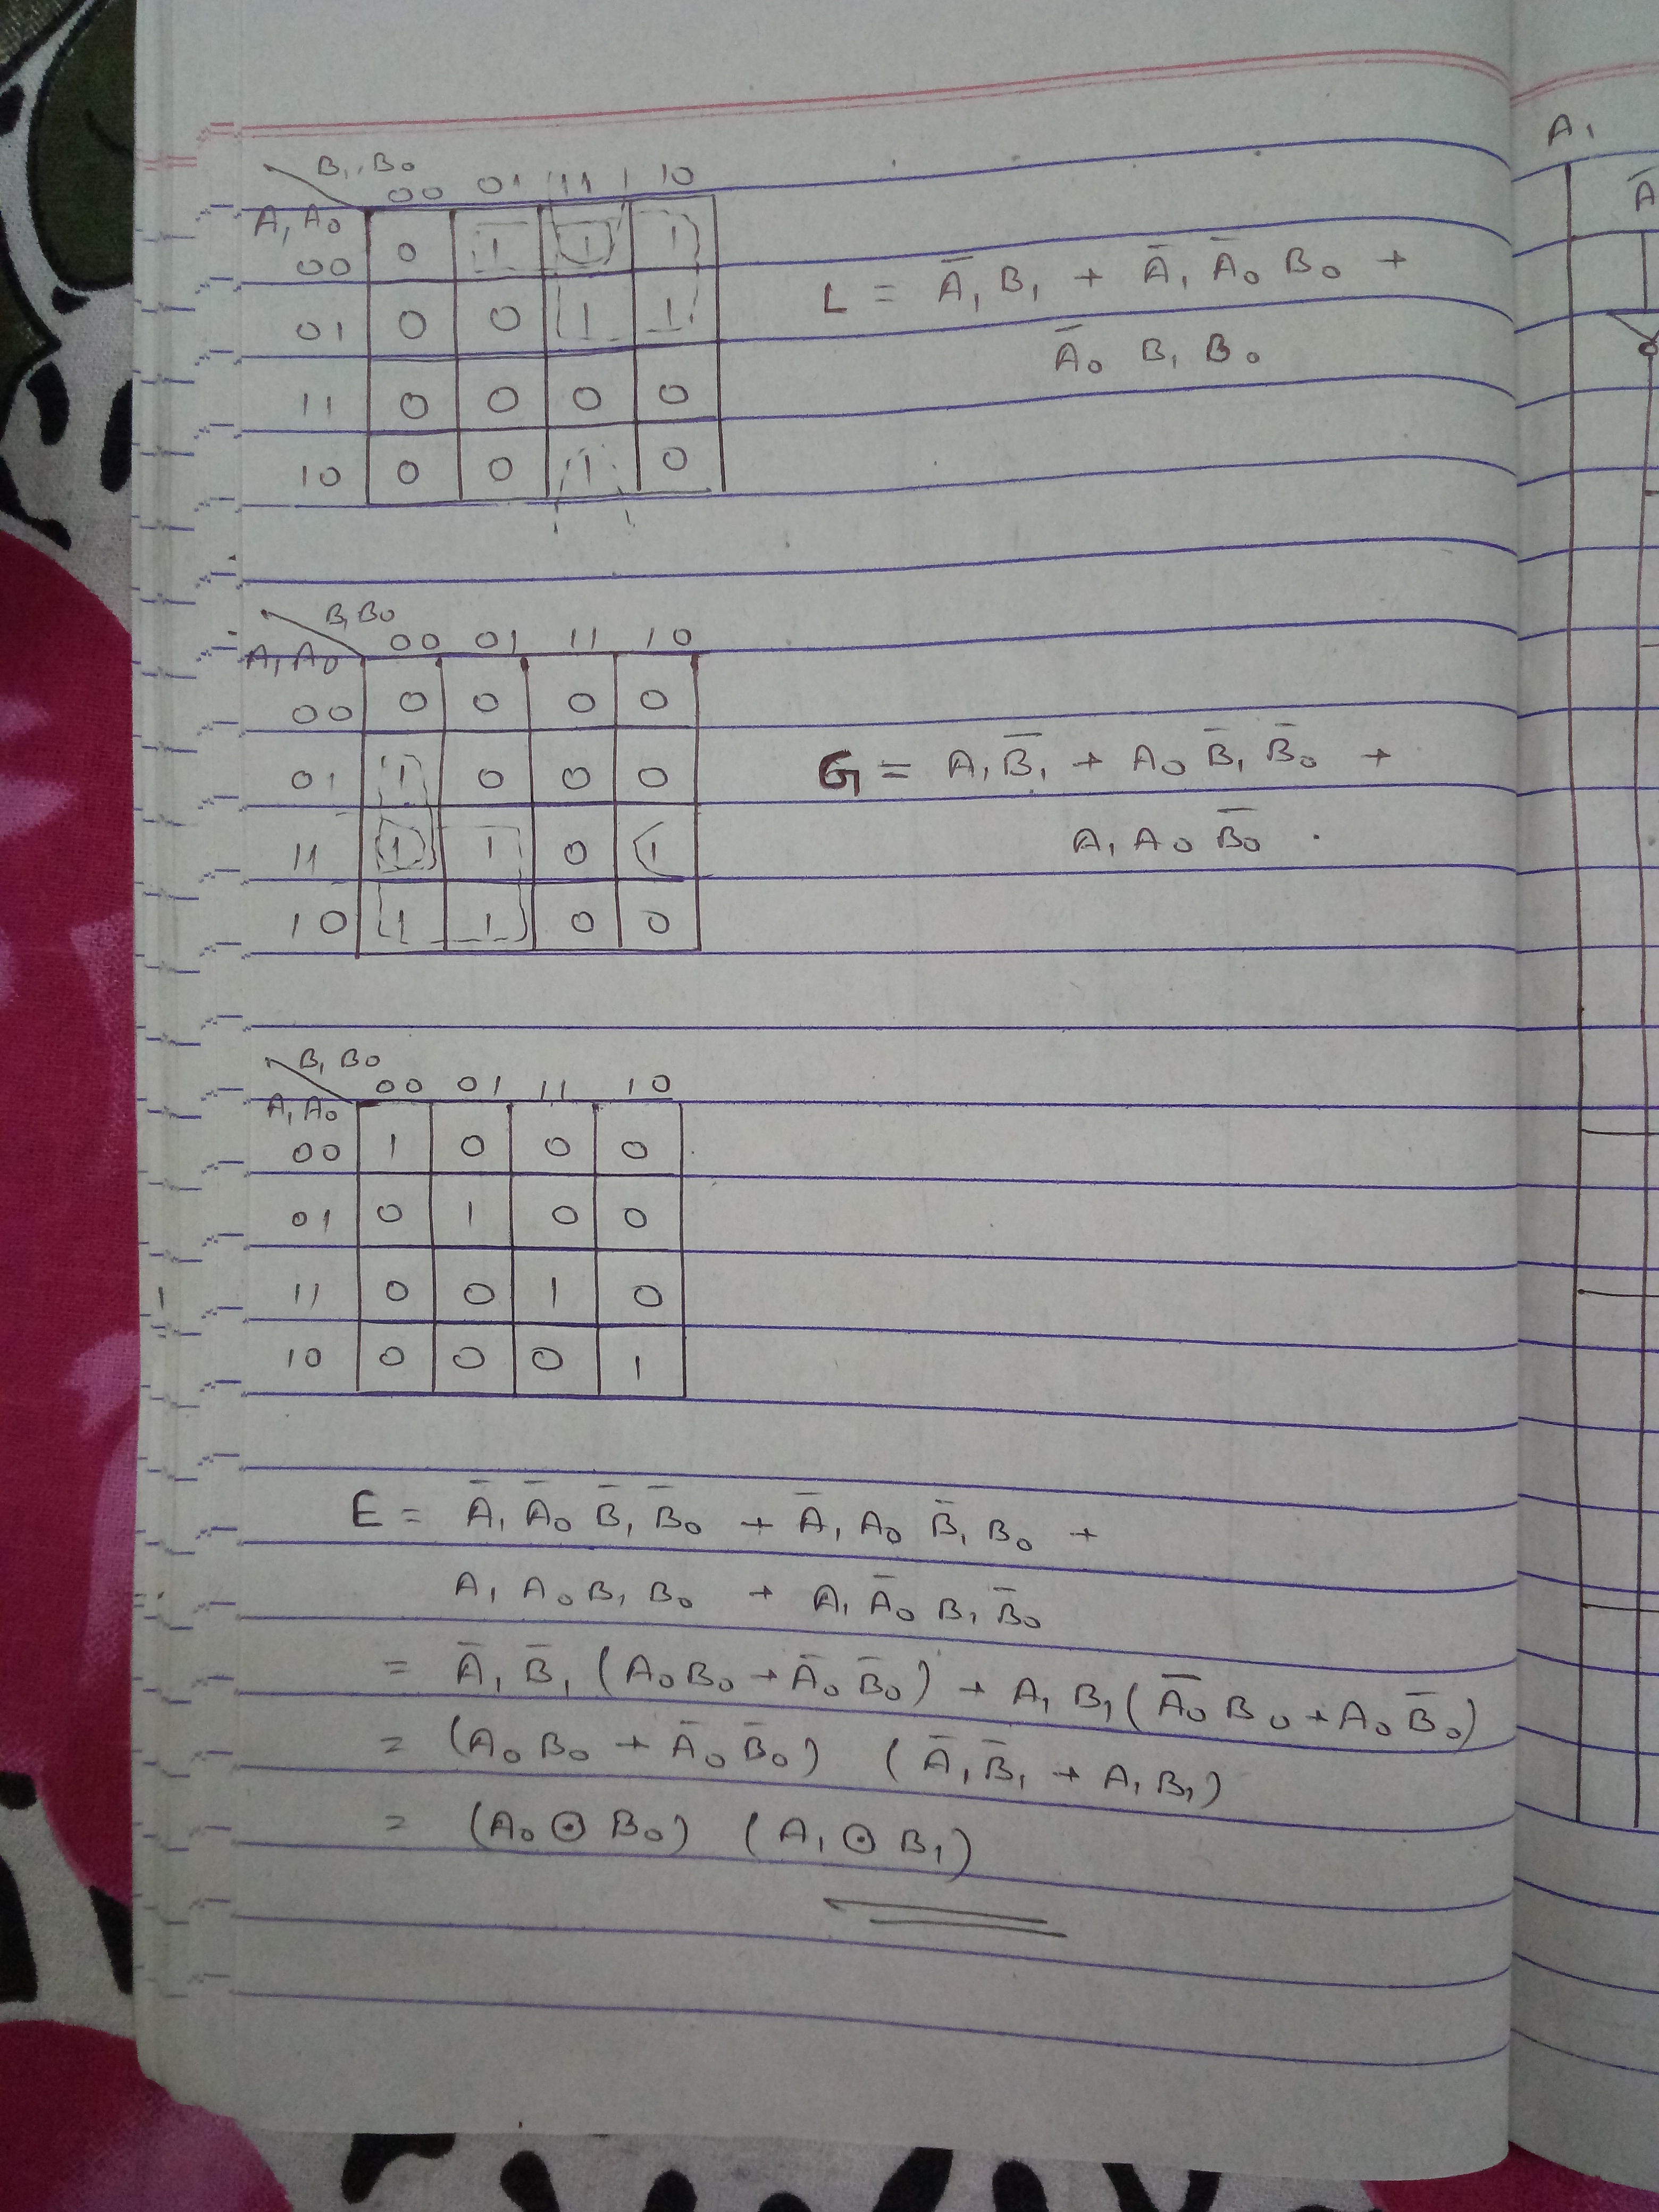 B₁ B₀
00 01 11 10
A₁ A₀
00 0 1 1 1
01 0 0 1 1
11 0 0 0 0
10 0 0 1 0
L = A̅₁ B₁ + A̅₁ A̅₀ B₀ +
A̅₀ B₁ B₀
B₁ B₀
00 01 11 10
A₁ A₀
00 0 0 0 0
01 1 0 0 0
11 1 1 0 1
10 1 1 0 0
G = A₁ B̅₁ + A₀ B̅₁ B̅₀ +
A₁ A₀ B̅₀ .
B₁ B₀
00 01 11 10
A₁ A₀
00 1 0 0 0
01 0 1 0 0
11 0 0 1 0
10 0 0 0 1
E = A̅₁ A̅₀ B̅₁ B̅₀ + A̅₁ A₀ B̅₁ B₀ +
A₁ A₀ B₁ B₀ + A₁ A̅₀ B₁ B̅₀
= A̅₁ B̅₁ (A₀ B₀ + A̅₀ B̅₀) + A₁ B₁ (A̅₀ B₀ + A₀ B̅₀)
= (A₀ B₀ + A̅₀ B̅₀) (A̅₁ B̅₁ + A₁ B₁)
= (A₀ ⊙ B₀) (A₁ ⊙ B₁)
A₁